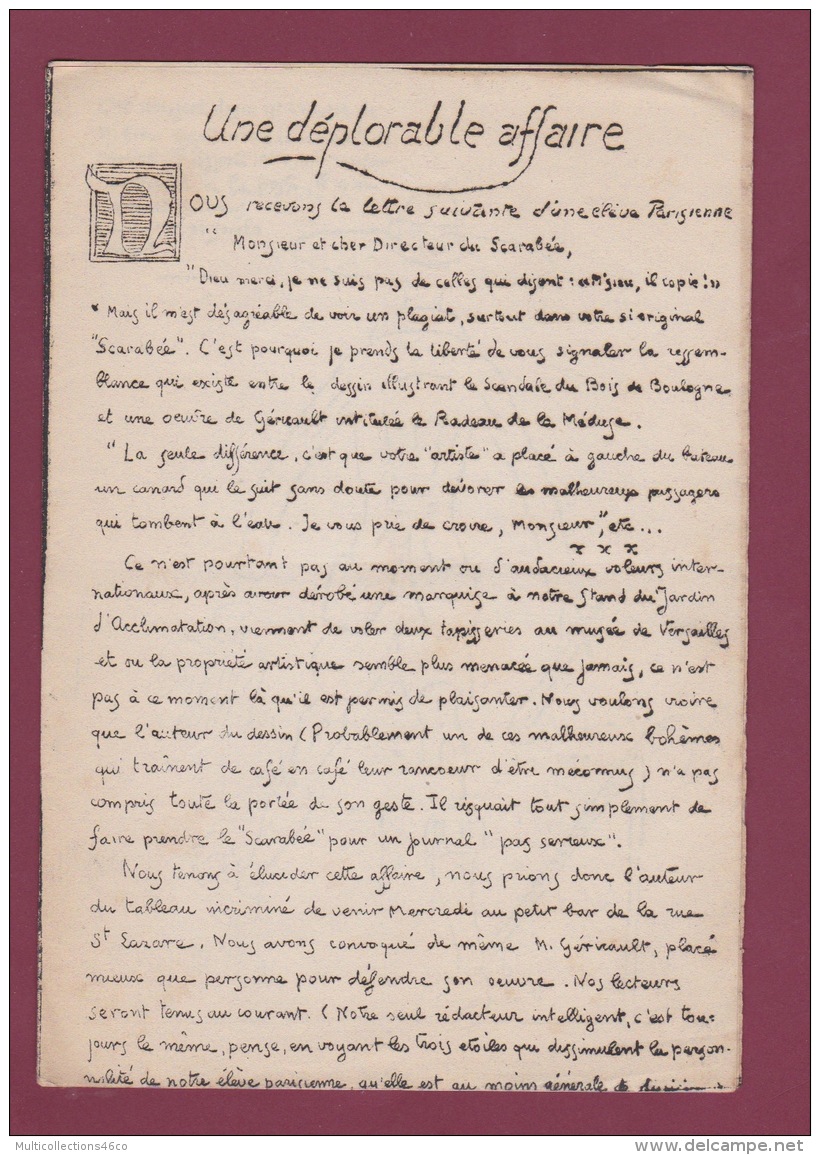 Une déplorable affaire
NOUS recevons la lettre suivante d'une élève Parisienne
" Monsieur et cher Directeur du Scarabée,
"Dieu merci, je ne suis pas de celles qui disent : «M'sieu, il copie!»
" Mais il m'est désagréable de voir un plagiat, surtout dans votre si original
"Scarabée". C'est pourquoi je prends la liberté de vous signaler la ressem-
blance qui existe entre le dessin illustrant le Scandale du Bois de Boulogne
et une oeuvre de Géricault intitulée le Radeau de la Méduse.
" La seule différence, c'est que votre "artiste" a placé à gauche du bateau
un canard qui le suit sans doute pour dévorer les malheureux passagers
qui tombent à l'eau. Je vous prie de croire, Monsieur", etc...
x x x
Ce n'est pourtant pas au moment ou d'audacieux voleurs inter-
nationaux, après avoir dérobé une marquise à notre Stand du Jardin
d'Acclimatation, viennent de voler deux tapisseries au musée de Versailles
et ou la propriété artistique semble plus menacée que jamais, ce n'est
pas à ce moment là qu'il est permis de plaisanter. Nous voulons croire
que l'auteur du dessin (Probablement un de ces malheureux bohèmes
qui traînent de café en café leur rancoeur d'être méconnus) n'a pas
compris toute la portée de son geste. Il risquait tout simplement de
faire prendre le "Scarabée" pour un journal "pas serieux".
Nous tenons à élucider cette affaire, nous prions donc l'auteur
du tableau incriminé de venir Mercredi au petit bar de la rue
St Lazare. Nous avons convoqué de même M. Géricault, placé
mieux que personne pour défendre son oeuvre. Nos lecteurs
seront tenus au courant. (Notre seul rédacteur intelligent, c'est tou-
jours le même, pense, en voyant les trois etoiles qui dissimulent la person-
nalité de notre élève parisienne, qu'elle est au moins générale de division
Multicollections46co
www.delcampe.net